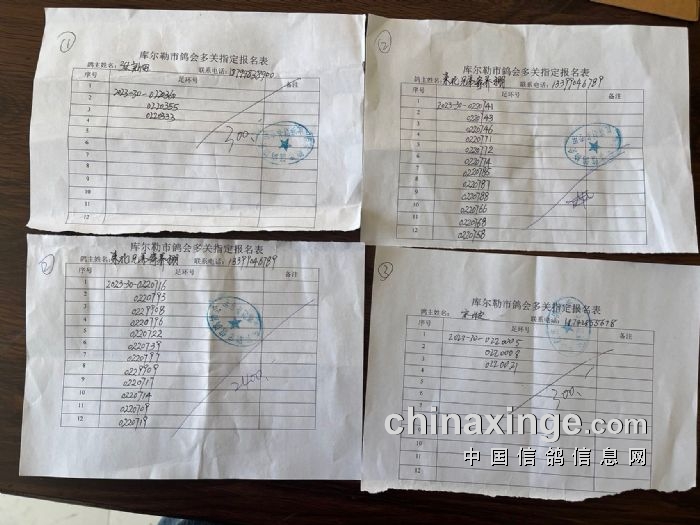 ①
库尔勒市鸽会多关指定报名表
鸽主姓名:
联系电话:
序号 足环号 备注
1 2023-30-0220360
2 0220355
3 0220333
4
5 300
6
7
8
9
10
11
12
②
库尔勒市鸽会多关指定报名表
鸽主姓名:
联系电话: 13399046789
序号 足环号 备注
1 2023-30-0220741
2 0220743
3 0220746
4 0220771
5 0220772
6 0220774
7 0220785
8 0220787
9 0220788
10 0220766
11 0220768
12 0220758
②
库尔勒市鸽会多关指定报名表
鸽主姓名:
联系电话: 13399046789
序号 足环号 备注
1 2023-30-0220716
2 0220793
3 0229908
4 0220796
5 0220722
6 0220739
7 0220797
8 0229909
9 0220717
10 0220714
11 0220709
12 0220719
2400
③
库尔勒市鸽会多关指定报名表
鸽主姓名:
联系电话:
序号 足环号 备注
1 2023-30-0220005
2 0220008
3 0220021
4
5
6 300
7
10
11
12
chinaxinge.com
中国信鸽信息网